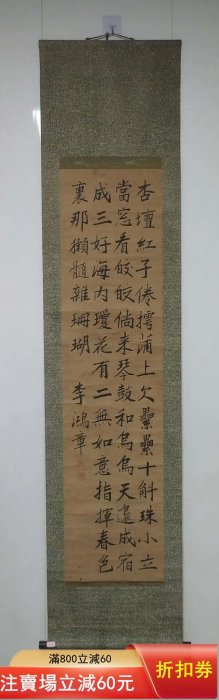 杏壇紅子倦摴蒲上欠纍纍十斛珠小立
當窓看皎皎倘来琴鼓和烏烏天邊成宿
成三好海内瓊花有二無如意指揮春色
裏那獺髓雜珊瑚
李鴻章
滿800立減60
注賣場立減60元
折扣券